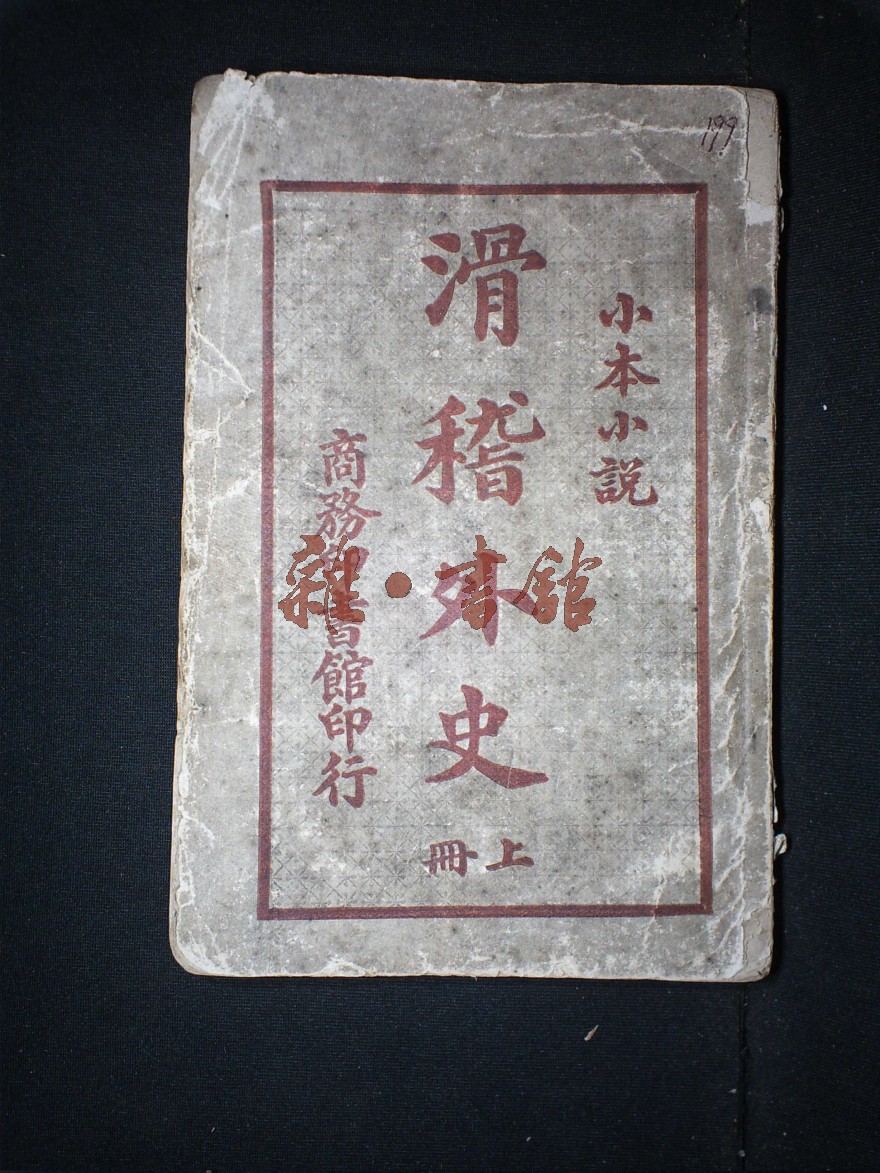 199
小本小説
滑稽外史
上冊
商務印書館印行
雜·書館